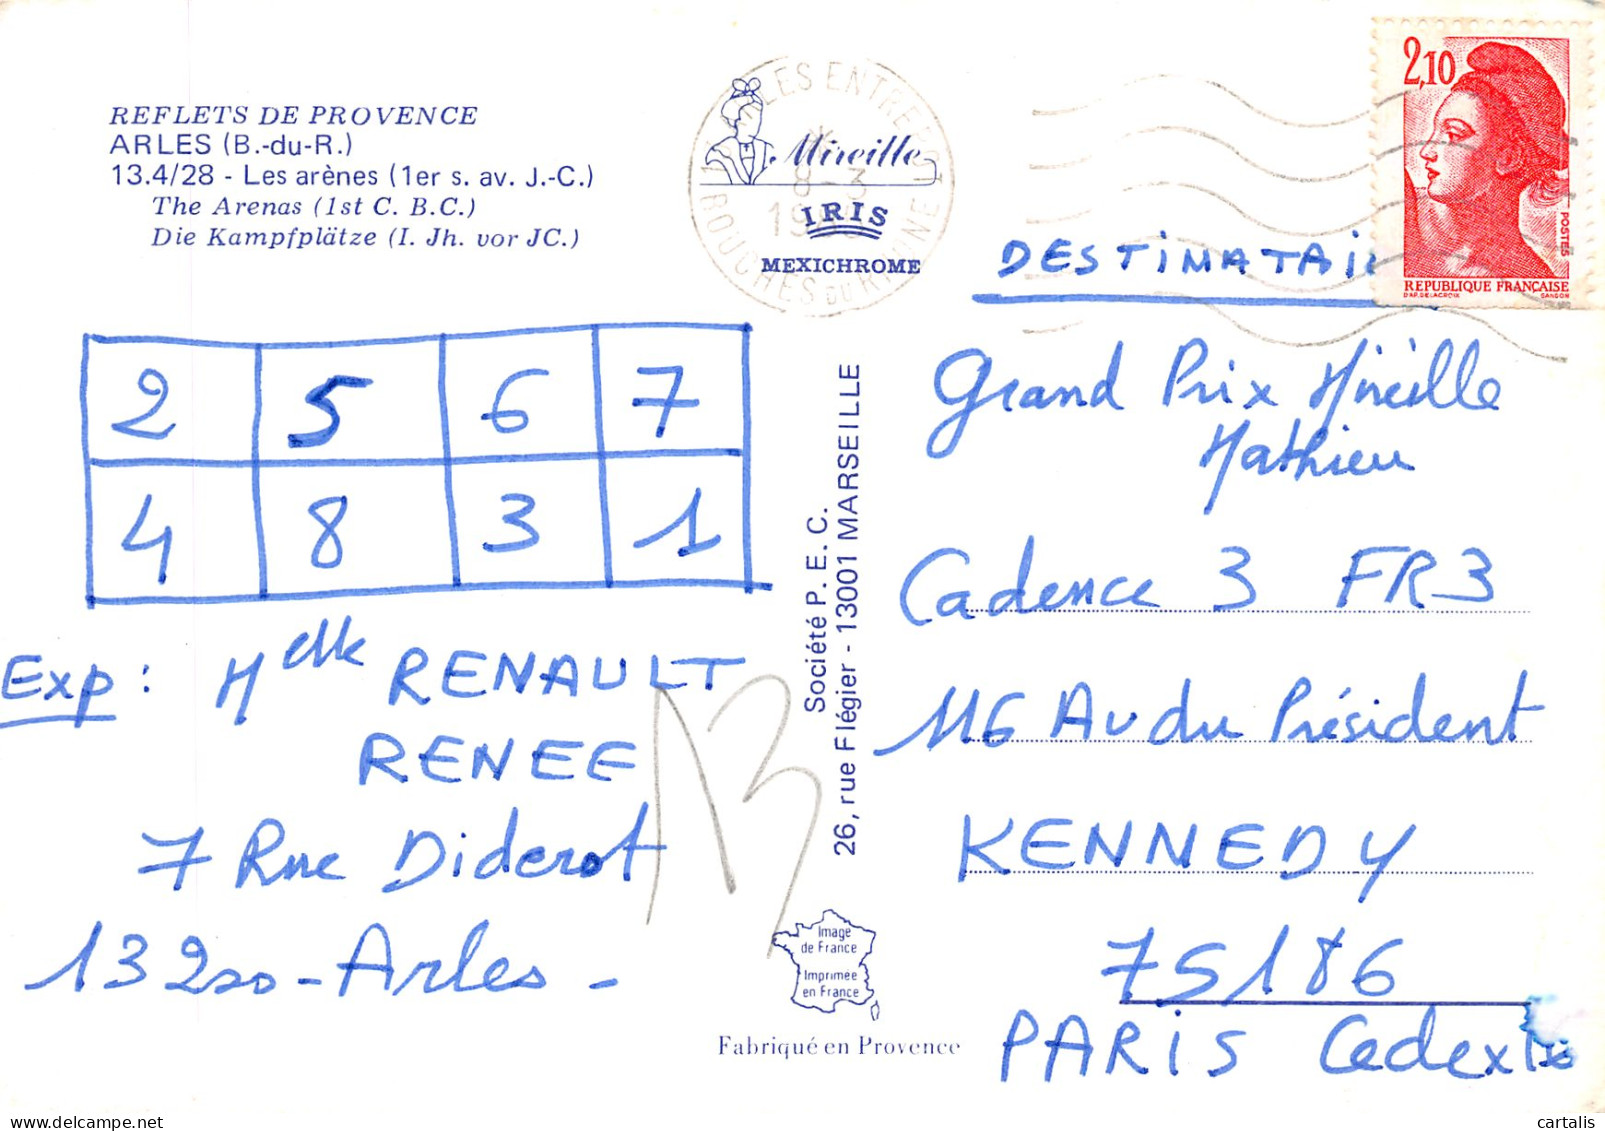 REFLETS DE PROVENCE
ARLES (B.-du-R.)
13.4/28 - Les arènes (1er s. av. J.-C.)
The Arenas (1st C. B.C.)
Die Kampfplätze (I. Jh. vor JC.)
Mireille
IRIS
MEXICHROME
8-3
BOUCHES DU RHONE
2,10
POSTES
REPUBLIQUE FRANÇAISE
D'AP. DELACROIX GANDON
2 5 6 7
4 8 3 1
Exp: Melle RENAULT
RENEE
7 Rue Diderot
13200 - Arles -
13
Société P. E. C.
26, rue Flégier - 13001 MARSEILLE
Image
de France
Imprimée
en France
Fabriqué en Provence
Grand Prix Mireille
Mathieu
Cadence 3 FR3
116 Av du Président
KENNEDY
75186
PARIS Cedex
cartalis